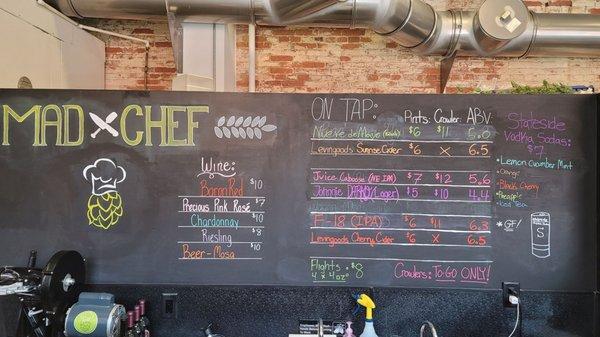 MAD CHEF
Wine:
Baron Red $10
Precious Pink Rosé $7
Chardonnay $10
Riesling $8
Beer-Mosa $10
ON TAP: Pints: Crowler: ABV:
$6 $11 5.0
Levngoods Sunrise Cider $6 x 6.5
Juice Caboose (NE IPA) $7 $12 5.6
Johnnie (Lager) $5 $10 4.4
F-18 (IPA) $6 $11 6.3
Levngoods Cherry Cider $6 x 6.5
Flights $8
4 x 4oz
Crowlers: TO-GO ONLY!
Stateside
Vodka Sodas:
$7
Lemon Cucumber Mint
Orange
Black Cherry
Pineapple
Iced Tea
*GF/
S